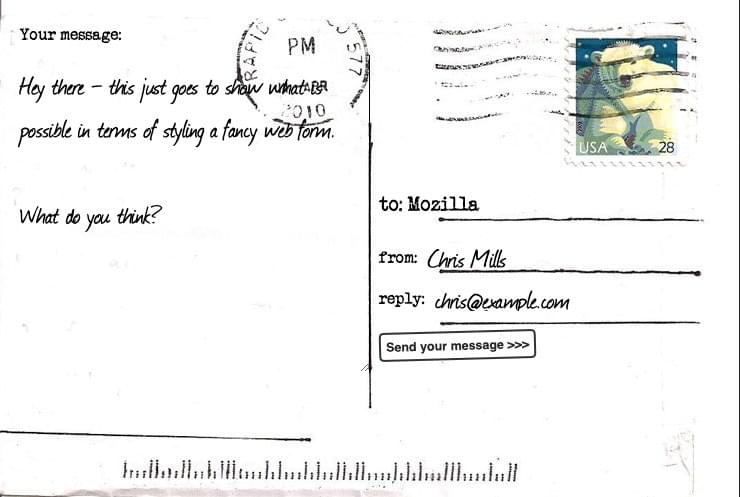 Your message:
Hey there – this just goes to show what is
possible in terms of styling a fancy web form.
What do you think?
RAPID
577
PM
APR
2010
USA
28
to: Mozilla
from: Chris Mills
reply: chris@example.com
Send your message >>>